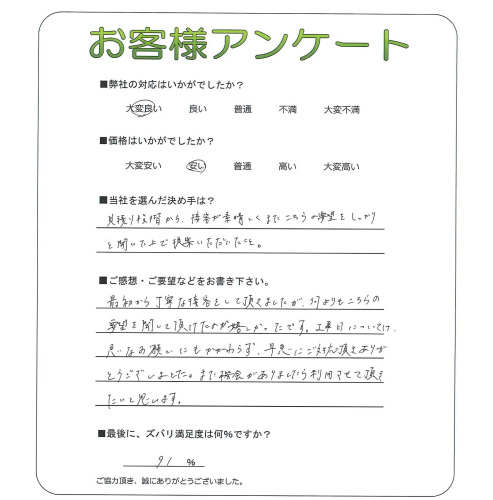 お客様アンケート
■弊社の対応はいかがでしたか？
大変良い 良い 普通 不満 大変不満
■価格はいかがでしたか？
大変安い 安い 普通 高い 大変高い
■当社を選んだ決め手は？
見積り段階から、接客が素晴しくまたこちらの要望をしっかり
と聞いた上で提案いただいたこと。
■ご感想・ご要望などをお書き下さい。
最初から丁寧な接客をして頂きましたが、何よりもこちらの
要望を聞いて頂けたのが嬉しかったです。工事日については、
急なお願いにもかかわらず、早急にご対応頂きありが
とうございました。また機会がありましたら利用させて頂き
たいと思います。
■最後に、ズバリ満足度は何%ですか？
91 %
ご協力頂き、誠にありがとうございました。